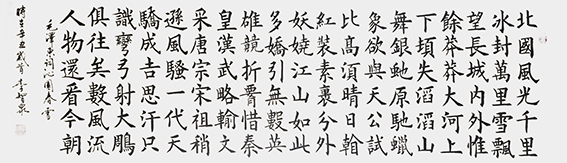 北國風光千里
冰封萬里雪飄
望長城內外惟
餘莽莽大河上
下頃失滔滔山
舞銀虵原馳蠟
象欲與天公試
比高須晴日
紅裝素裹分外
妖嬈江山如此
多嬌引無數英
雄競折腰惜秦
皇漢武略輸文
采唐宗宋祖稍
遜風騷一代天
驕成吉思汗只
識彎弓射大鵰
俱往矣數風流
人物還看今朝
毛澤東詞沁園春雪
時在辛丑歲首李